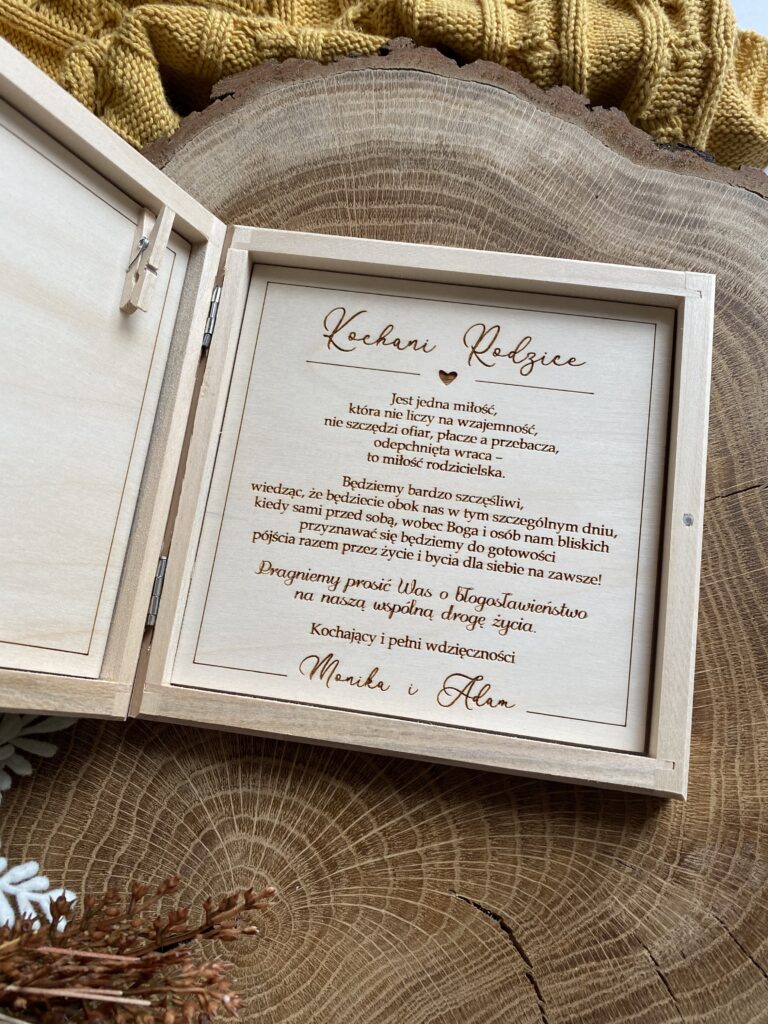 Kochani Rodzice
Jest jedna miłość,
która nie liczy na wzajemność,
nie szczędzi ofiar, płacze a przebacza,
odepchnięta wraca –
to miłość rodzicielska.
Będziemy bardzo szczęśliwi,
wiedząc, że będziecie obok nas w tym szczególnym dniu,
kiedy sami przed sobą, wobec Boga i osób nam bliskich
przyznawać się będziemy do gotowości
pójścia razem przez życie i bycia dla siebie na zawsze!
Pragniemy prosić Was o błogosławieństwo
na naszą wspólną drogę życia.
Kochający i pełni wdzięczności
Monika i Adam